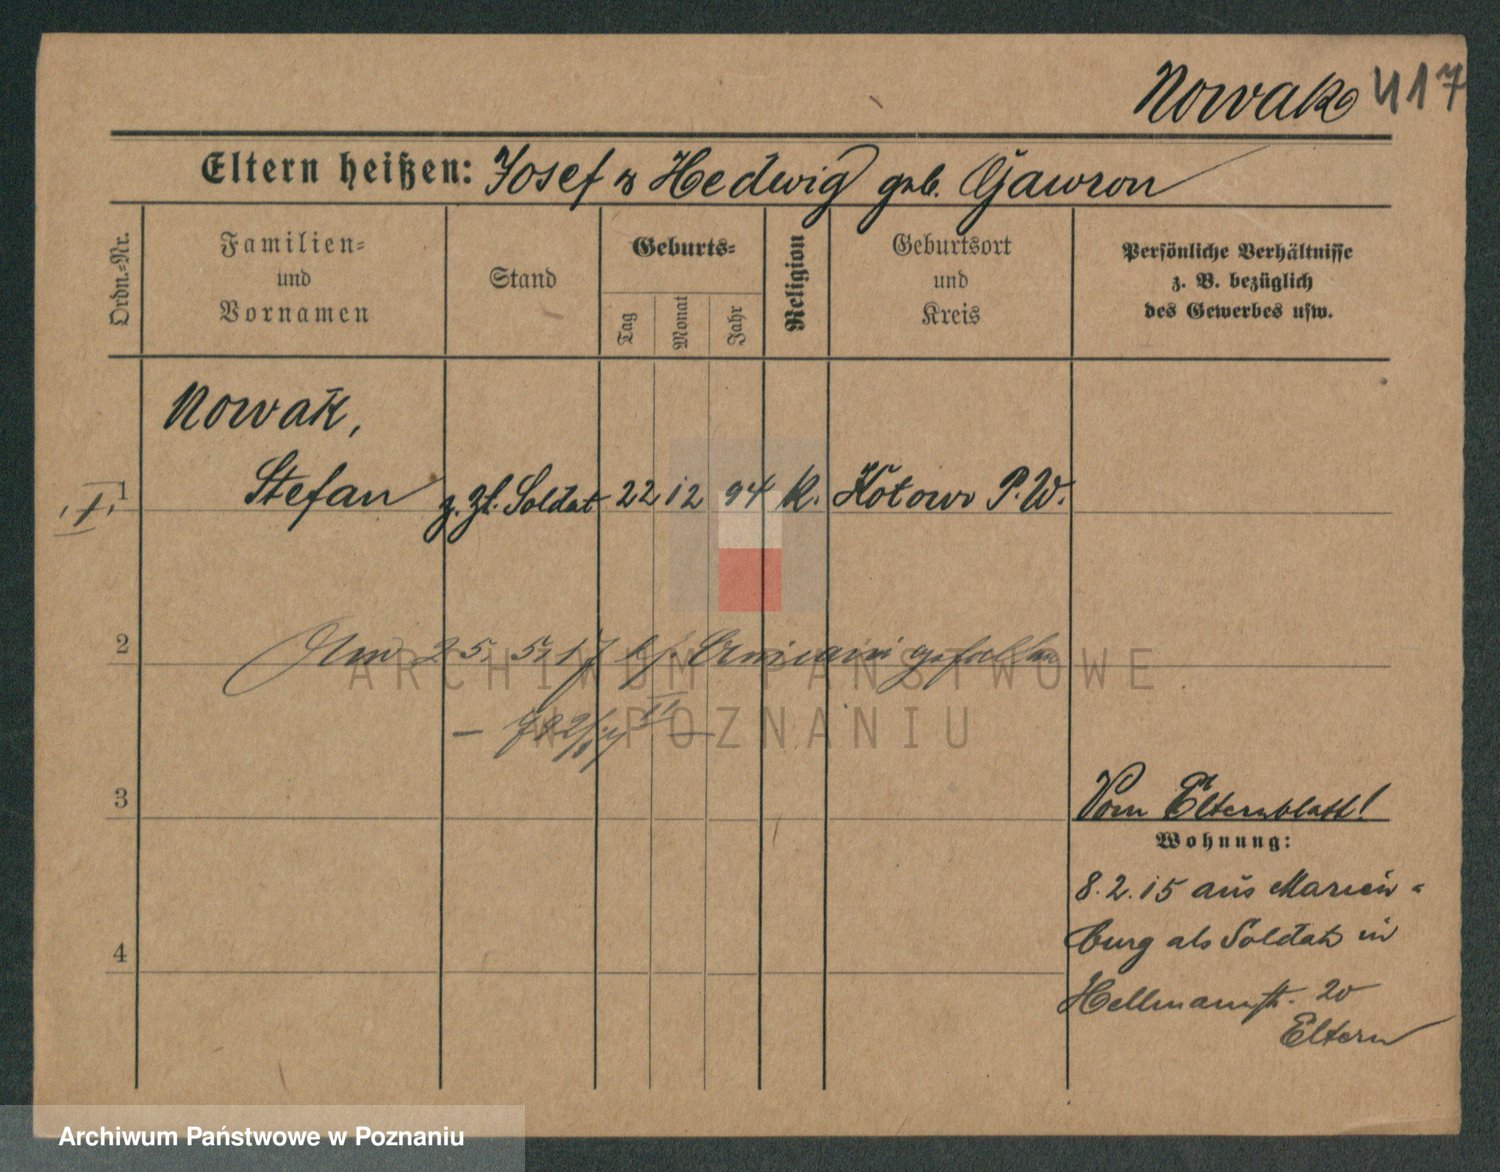 Nowak 417
Eltern heißen: Josef u Hedwig geb. Gawron
Ordn.-Nr.
Familien-
und
Vornamen
Stand
Geburts-
Tag
Monat
Jahr
Religion
Geburtsort
und
Kreis
Persönliche Verhältnisse
z. B. bezüglich
des Gewerbes usw.
Nowak,
1 Stefan z. Zt. Soldat 22 12 94 K. Kotowo P. W.
2 Am 25. 5. 17 gefallen
ARCHIWUM PAŃSTWOWE
W POZNANIU
3
Vom Elternblatt!
Wohnung:
8. 2. 15 aus Marien-
burg als Soldat in
4
Hellmannstr. 20
Eltern
Archiwum Państwowe w Poznaniu